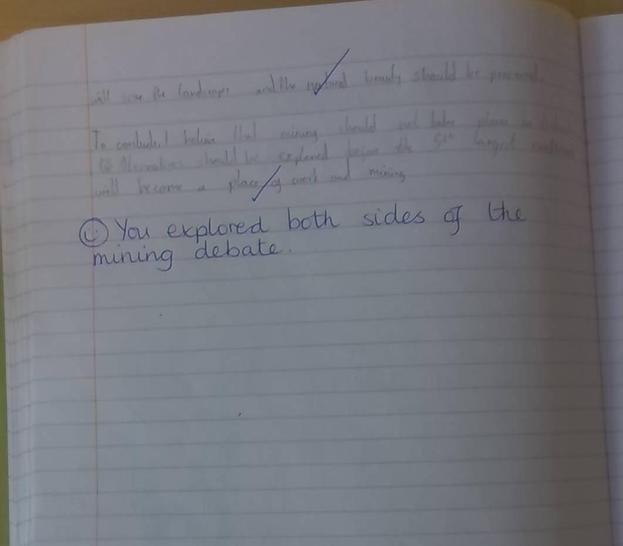 will   the landscape and the natural beauty should be preserved.
To conclude, I believe that mining should not take place in
Alternatives should be explored before the 5th largest continent
will become a place of work and mining
You explored both sides of the
mining debate.